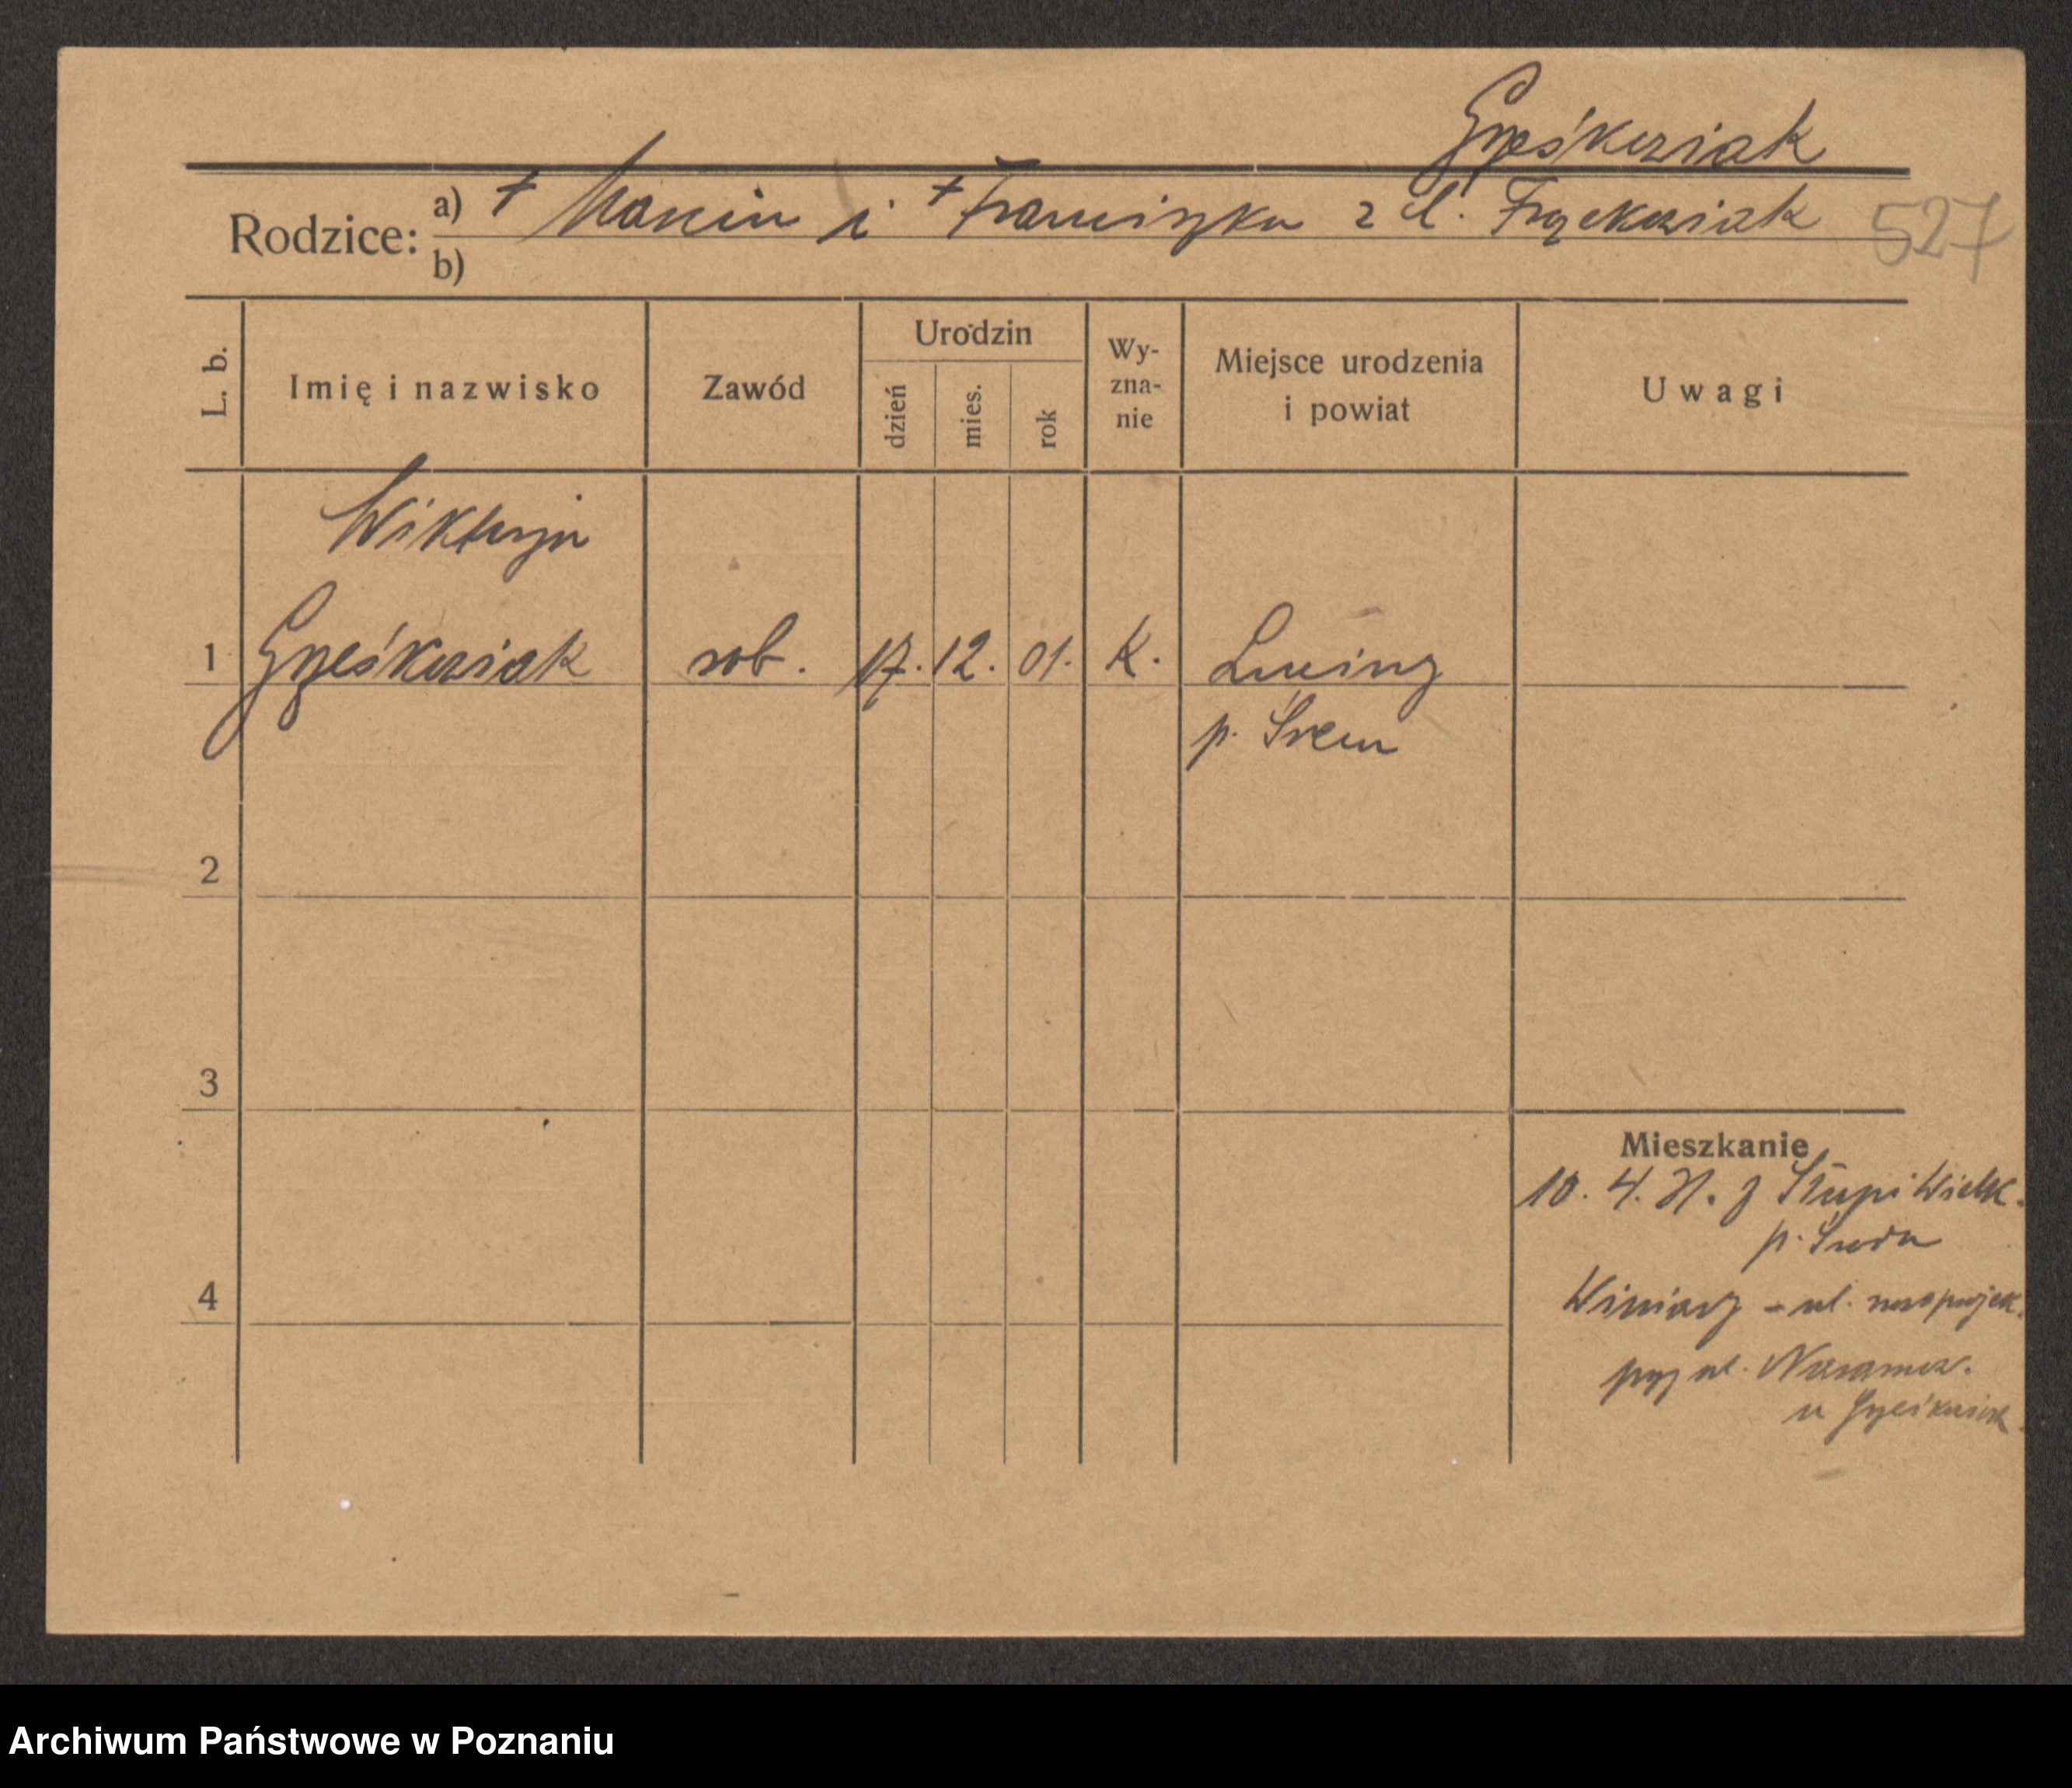 Grześkowiak
Rodzice: a) + Marcin i + Franciszka z d. Frąckowiak 527
b)
L. b.
Imię i nazwisko
Zawód
Urodzin
dzień
mies.
rok
Wy-
zna-
nie
Miejsce urodzenia
i powiat
Uwagi
Wiktorja
1 Grześkowiak rob. 17. 12. 01. K.
p. Śrem
2
3
Mieszkanie
10. 4. 31. z Słupi Wielk.
p. Środa
4
Winiary - ul. nowoprojek.
przy ul.
u Grześkowiak
Archiwum Państwowe w Poznaniu